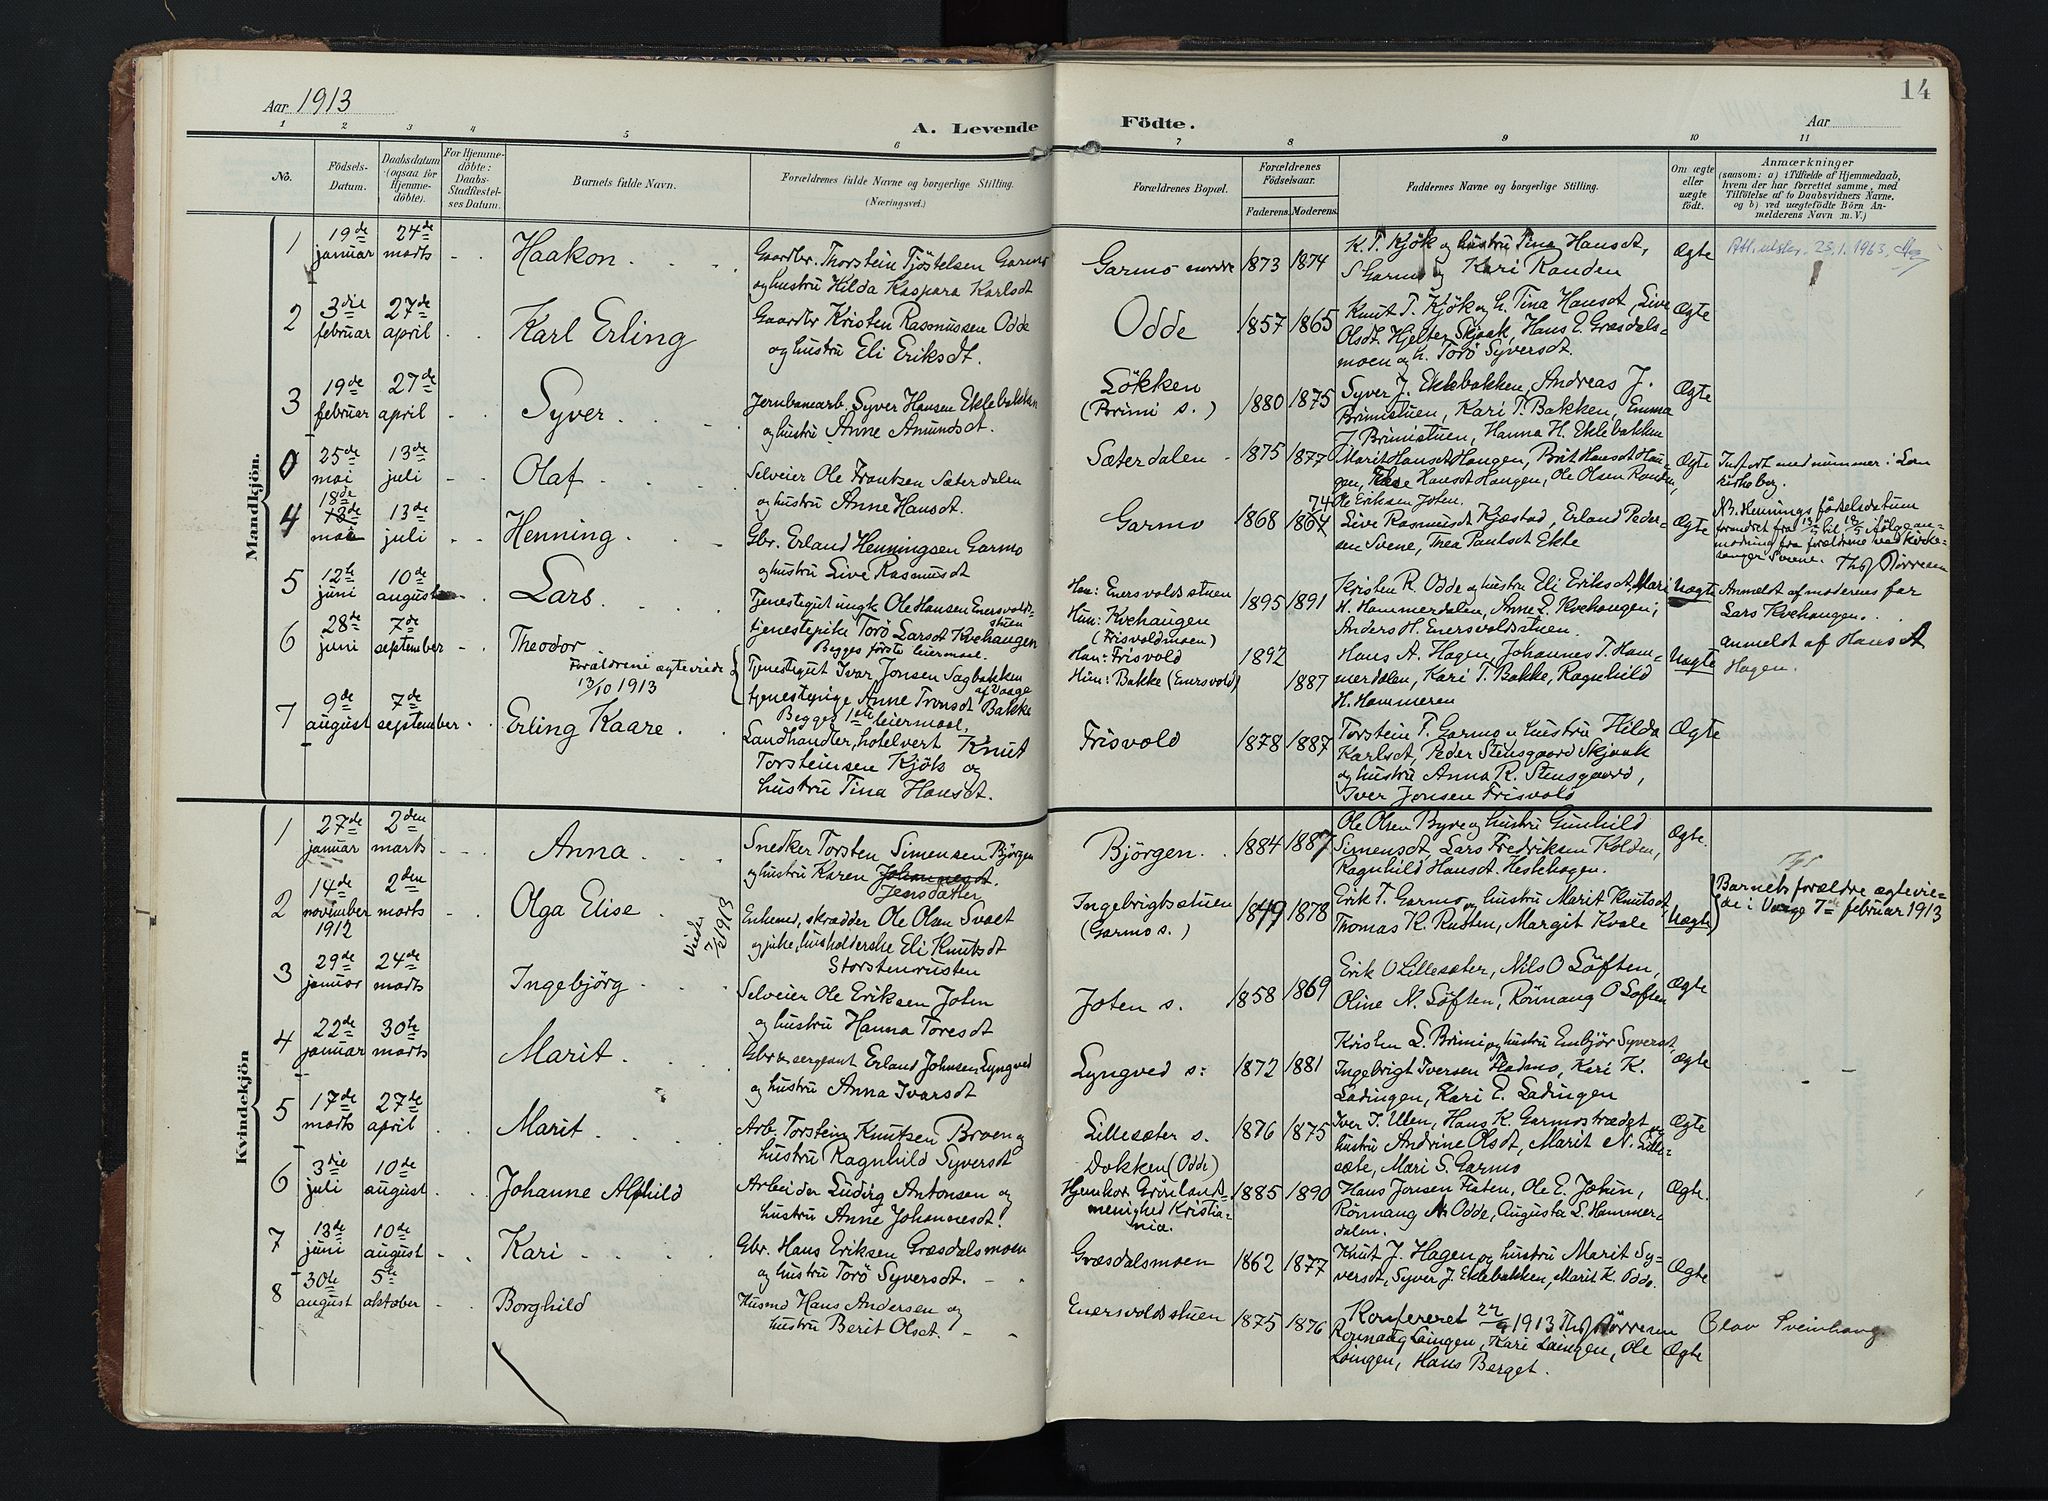 14
Aar 1913
A. Levende Födte.
Aar
1 2 3 4 5 6 7 8 9 10 11
No.
Födsels-
Datum.
Daabsdatum
(ogsaa for
Hjemme-
döbte).
For Hjemme-
döbte:
Daabs-
Stadfæstel-
ses Datum.
Barnets fulde Navn.
Forældrenes fulde Navne og borgerlige Stilling.
(Næringsvei.)
Forældrenes Bopæl.
Forældrenes
Födselsaar.
Faderens. Moderens.
Faddernes Navne og borgerlige Stilling.
Om ægte
eller
uægte
födt.
Anmærkninger
(saasom: a) i Tilfælde af Hjemmedaab,
hvem der har forrettet samme, med
Tilföielse af to Daabsvidners Navne,
og b) ved uægtefödte Börn An-
melderens Navn m. V.)
Mandkjön.
1
19de
januar
24de
marts
Haakon
Gaardbr. Thorstein Tjöstelsen Garmo
og hustru Hilda Kaspara Karlsdt
Garmo nordre
1873 1874
K. T. Kjök og hustru Tina Hansdt,
S Garmo og Kari Randen
Ægte
23.1.1963
2
3die
februar
27de
april
Karl Erling
Gaardbr Kristen Rasmussen Odde
og hustru Eli Eriksdt.
Odde
1857 1865
Knut T. Kjök og h. Tina Hansdt, Live
Olsdt. Hjelter Skjaak, Hans E. Græsdals-
moen og h. Torö Syversdt.
Ægte
3
19de
februar
27de
april
Syver
Jernbanearb. Syver Hansen Eklebakken
og hustru Anne Amundsdt.
Lökken
(Brimi s.)
1880 1875
Syver J. Eklebakken, Andreas J.
Brimistuen, Kari T. Bakken, Emma
J Brimistuen, Hanna H. Eklebakken
Ægte
0
25de
mai
13de
juli
Olaf
Selveier Ole Frantsen Sæterdalen
og hustru Anne Hansdt.
Sæterdalen
1875 1877
Marit Hansdt Haugen, Brit Hansdt Hau-
gen, Hansdt Haugen, Ole Olsen Randen,
Ole Eriksen Joten.
Ægte
Indfört med nummer i Lom
kirkebog.
4
18de
13de
mai
13de
juli
Henning
Gbr. Erland Henningsen Garmo
og hustru Live Rasmusdt
Garmo
1868 1864
74
Live Rasmusdt Kjæstad, Erland Peder-
sen Svene, Thea Paulsdt Ekle
Ægte
NB. Hennings födseledatum
forandret fra 13/5 til 18/5 ifölge an-
modning fra forældrene ved kirke-
sanger Svene. Thsf Börresen
5
12te
juni
10de
august
Lars
Tjenestegut ungk Ole Hansen Enersvolds-
stuen
tjenestepike Torö Larsdt Kvehaugen
Begges förste leiermaal.
Han: Enersvoldsstuen
Hun: Kvehaugen
(Frisvoldmoen)
1895 1891
Kristen R. Odde og hustru Eli Eriksdt, Mari
H. Hammerdalen, Anne L. Kvehaugen,
Anders H. Enersvoldsstuen.
Uægte
Anmeldt af moderens far
Lars Kvehaugen.
6
28de
juni
7de
september
Theodor
Forældrene ægteviede
13/10 1913
Tjenestegut Ivar Jonsen Sagbakken
af Vaage
tjenestepige Anne Tronsdt Bakke
Begges 1ste leiermaal.
Han: Frisvold
Hun: Bakke (Enersvold)
1892
1887
Hans A. Hagen, Johannes T. Ham-
merdalen, Kari T. Bakke, Ragnhild
H. Hammeren
Uægte
anmeldt af Hans A
Hagen.
7
9de
august
7de
september
Erling Kaare
Landhandler, hotelvert Knut
Torsteinsen Kjök og
hustru Tina Hansdt.
Frisvold
1878 1887
Torstein T. Garmo og hustru Hilda
Karlsdt, Peder Stensgaard Skjaak
og hustru Anna R. Stensgaard,
Iver Jonsen Frisvold
Ægte
Kvindekjön
1
27de
januar
2den
marts
Anna
Snedker Torsten Simensen Björgen
og hustru Karen Johannesdt.
Jensdatter
Björgen.
1884 1887
Ole Olsen Byre og hustru Gunhild
Simensdt, Lars Fredriksen Kolden,
Ragnhild Hansdt. Hestehagen.
Ægte.
2
14de
november
1912
2den
marts
Olga Elise
Viede
7/2 1913
Enkemd, skrædder Ole Olsen Svaet
og pike, husholderske Eli Knutsdt
Storstenrusten
Ingebrigtsstuen
(Garmo s.)
1849 1878
Erik T. Garmo og hustru Marit Knutsdt,
Thomas K. Rusten, Margit Kvale
Uægte
Barnets forældre ægtevie-
de i Vaage 7de februar 1913
3
29de
januar
24de
marts
Ingebjörg
Selveier Ole Eriksen Joten
og hustru Hanna Toresdt
Joten s.
1858 1869
Erik O Lillesæter, Nils O Löften,
Oline N. Löften, Rönnaug O Löften
Ægte
4
22de
januar
30te
marts
Marit
Gbr & sergeant Erland Johnsen Lyngved
og hustru Anna Ivarsdt
Lyngved s:
1872 1881
Kristen L. Brimi og hustru Embjör Syversdt
Ingebrigt Iversen Flatmo, Kari K.
Ladingen, Kari E. Ladingen
Ægte
5
17de
marts
27de
april
Marit
Arb. Torstein Knutsen Broen og
hustru Ragnhild Syversdt
Lillesæter s.
1876 1875
Iver T. Ulen, Hans K. Garmostrædet og
hustru Andrine Olsdt, Marit N. Lille-
sæte, Mari S. Garmo
Ægte
6
3die
juli
10de
august
Johanne Alfhild
Arbeider Ludvig Antonsen og
hustru Anne Johannesdt.
Dokken (Odde)
Hjemhör. Grönlands
menighed Kristia-
nia.
1885 1890
Hans Jonsen Flaten, Ole E. Joten,
Rönnaug N. Odde, Augusta L. Hammer-
dalen.
Ægte.
7
13de
juni
10de
august
Kari
Gbr. Hans Eriksen Græsdalsmoen
og hustru Torö Syversdt.
Græsdalsmoen
1862 1877
Knut J. Hagen og hustru Marit Sy-
versdt, Syver J. Eklebakken, Marit K. Odde.
Ægte
8
30te
august
5te
oktober
Borghild
Husmd Hans Andersen og
hustru Berit Olsdt.
Enersvoldsstuen
1875 1876
Konfereret 22/9 1913 Thsf Börresen
Rönnaug Laingen, Kari Laingen, Ole
Laingen, Hans Berget.
Ægte
Olav Sveinhaug